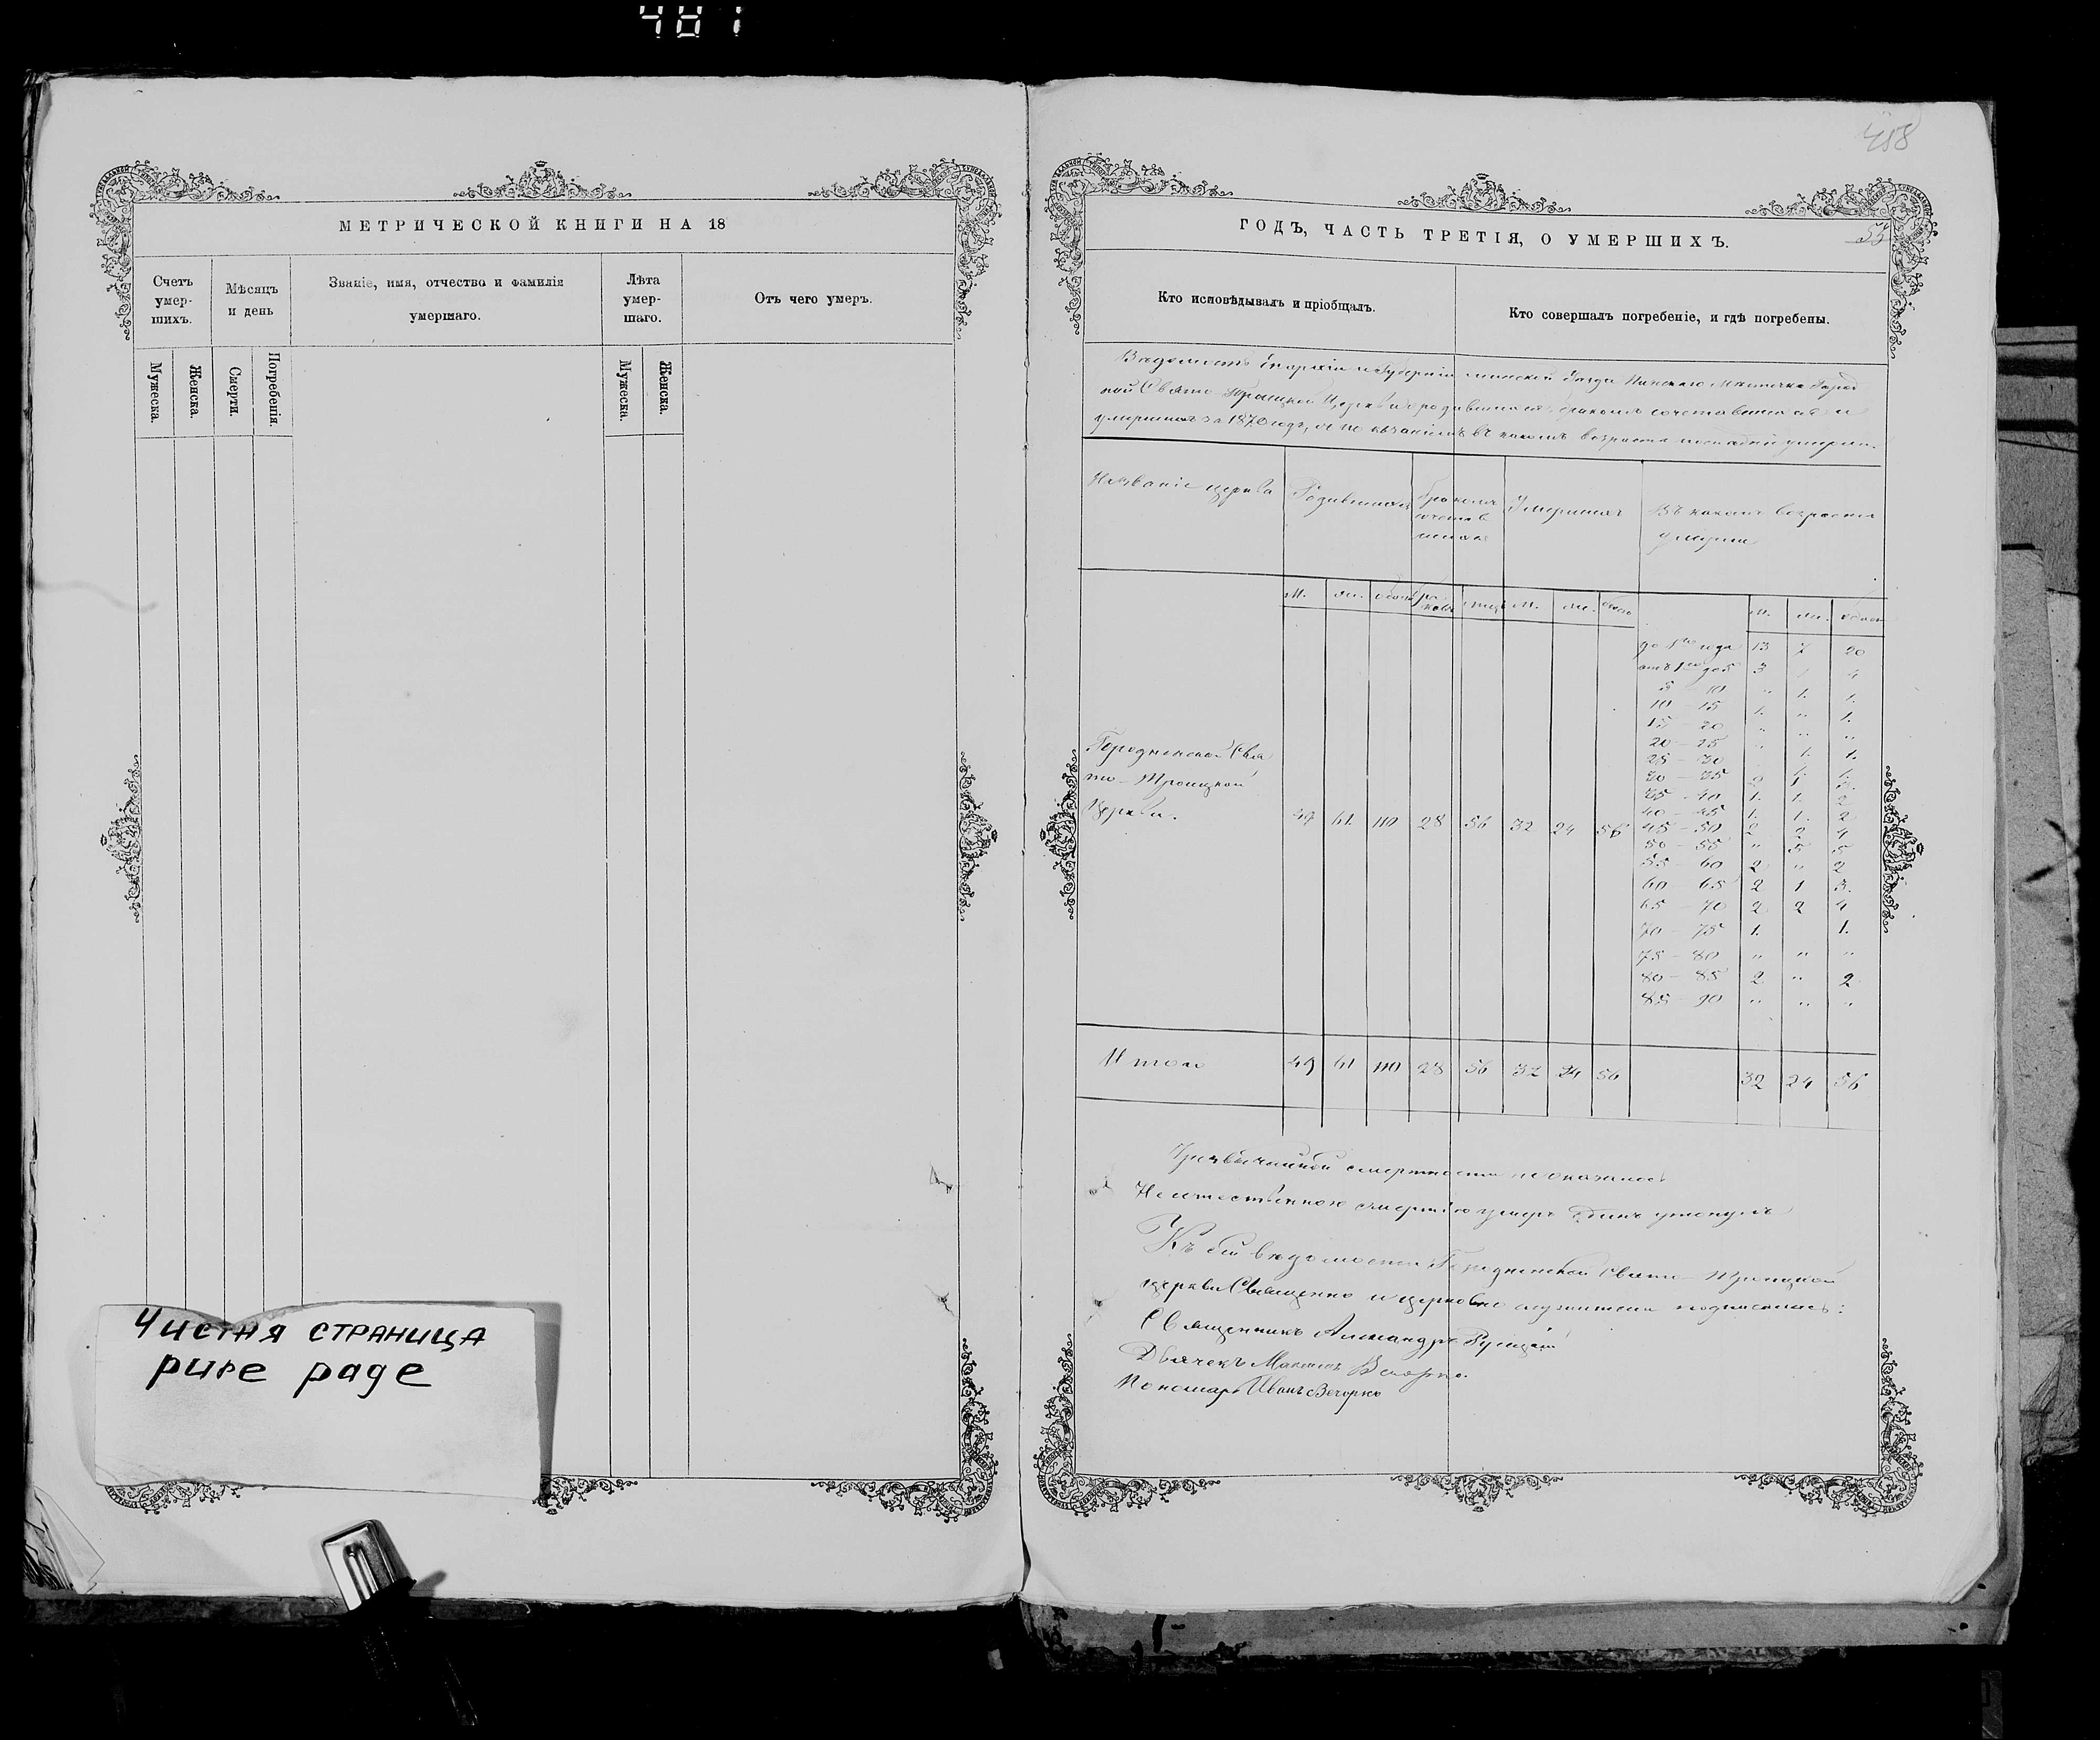 481
МЕТРИЧЕСКОЙ КНИГИ НА 18
Счетъ умер-шихъ.
Мѣсяцъ и день
Званіе, имя, отчество и фамилія умершаго.
Лѣта умер-шаго.
Отъ чего умеръ.
Мужеска.
Женска.
Смерти.
Погребенія.
Мужеска.
Женска.
Чистая страница
pure page
458
ГОДЪ, ЧАСТЬ ТРЕТІЯ, О УМЕРШИХЪ.
53
Кто исповѣдывалъ и пріобщалъ.
Кто совершалъ погребеніе, и гдѣ погребены.
Вѣдомость Епархіи и Губерніи минской Уѣзда Пинскаго Мѣстечка
ной Свято Троицкой Церкви о родившихся бракомъ сочетавшихся и
умершихъ за 1870 годъ, въ какомъ возрастѣ
Названіе церкви
Родившихся
Бракомъ сочетав шихся
Умершихъ
Въ какомъ возрастѣ умерли
М. ж. обоего М. ж. обоего
М. ж. обоего
до 1го года 13 7 20
отъ 1го до 5 3 1 4
5 - 10 " 1. 1.
10 - 15 1. " 1.
15 - 20 " " "
20 - 25 " 1. 1.
25 - 30
30 - 35 2 1
35 - 40 1. 1. 2
40 - 45 1. 1. 2
45 - 50 2 2 4
50 - 55 " 5 5
55 - 60 2 " 2
60 - 65 2 1 3.
65 - 70 2 2 4
70 - 75 1. 1.
75 - 80 " " "
80 - 85 2 " 2
85 - 90 " " "
Городненской Свя
то-Троицкой
Церкви. 49 61 110 28 56 32 24 56
Итого 49 61 110 28 56 32 24 56 32 24 56
Чрезвычайной смертности не оказалось
Неестественною смертію умеръ Одинъ утонулъ
Къ сей вѣдомости Городненской Свято-Троицкой
церкви Священно и церковно служители подписались:
Священникъ Александръ
Дьячекъ
Пономарь Иванъ Вечорко